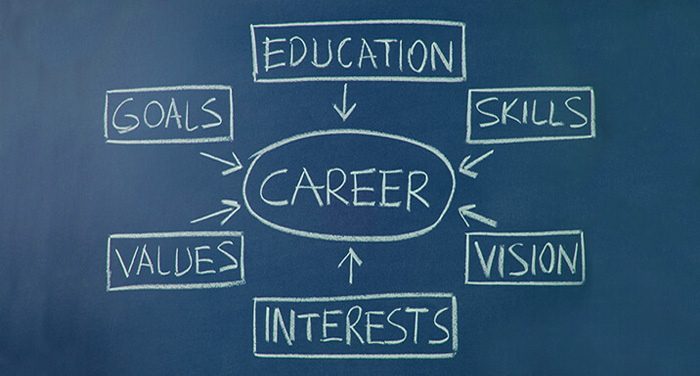 EDUCATION
GOALS
SKILLS
CAREER
VALUES
VISION
INTERESTS